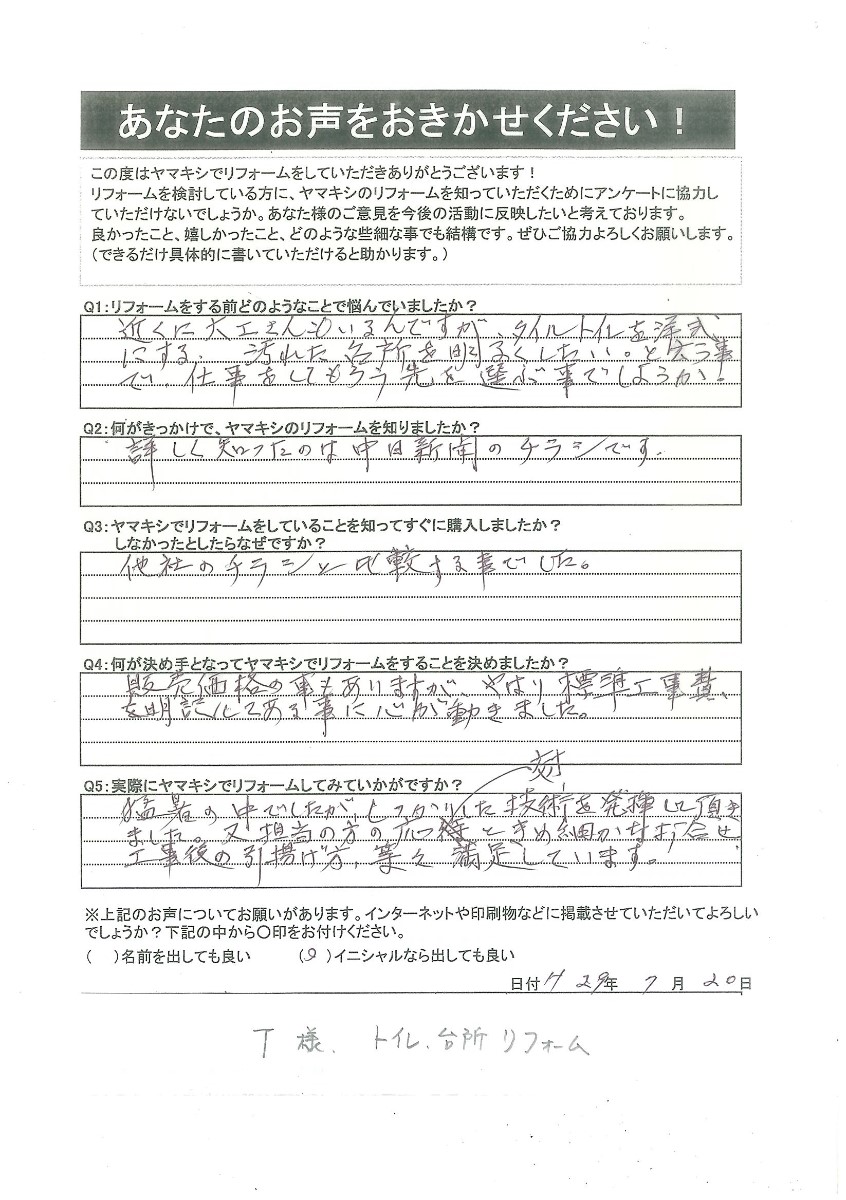 あなたのお声をおきかせください！
この度はヤマキシでリフォームをしていただきありがとうございます！
リフォームを検討している方に、ヤマキシのリフォームを知っていただくためにアンケートに協力し
ていただけないでしょうか。あなた様のご意見を今後の活動に反映したいと考えております。
良かったこと、嬉しかったこと、どのような些細な事でも結構です。ぜひご協力よろしくお願いします。
（できるだけ具体的に書いていただけると助かります。）
Q1：リフォームをする前どのようなことで悩んでいましたか？
近くに大工さんもいるんですが、タイルトイレを洋式
にする、汚れた台所を明るくしたい。と云う事
で、仕事をしてもらう先を選ぶ事でしようか！
Q2：何がきっかけで、ヤマキシのリフォームを知りましたか？
詳しく知ったのは中日新聞のチラシです。
Q3：ヤマキシでリフォームをしていることを知ってすぐに購入しましたか？
しなかったとしたらなぜですか？
他社のチラシと比較する事でした。
Q4：何が決め手となってヤマキシでリフォームをすることを決めましたか？
販売価格の事もありますが、やはり標準工事費、
を明記してある事に心が動きました。
Q5：実際にヤマキシでリフォームしてみていかがですか？
猛暑の中でしたが、しっかりした技術を発揮して頂き
ました。又担当の方の応対ときめ細かな打合せ
工事後の引揚げ方、等々満足しています。
※上記のお声についてお願いがあります。インターネットや印刷物などに掲載させていただいてよろしい
でしょうか？下記の中から〇印をお付けください。
（　）名前を出しても良い　（○）イニシャルなら出しても良い
日付 H 29年 7 月 20日
T 様、トイレ、台所リフォーム